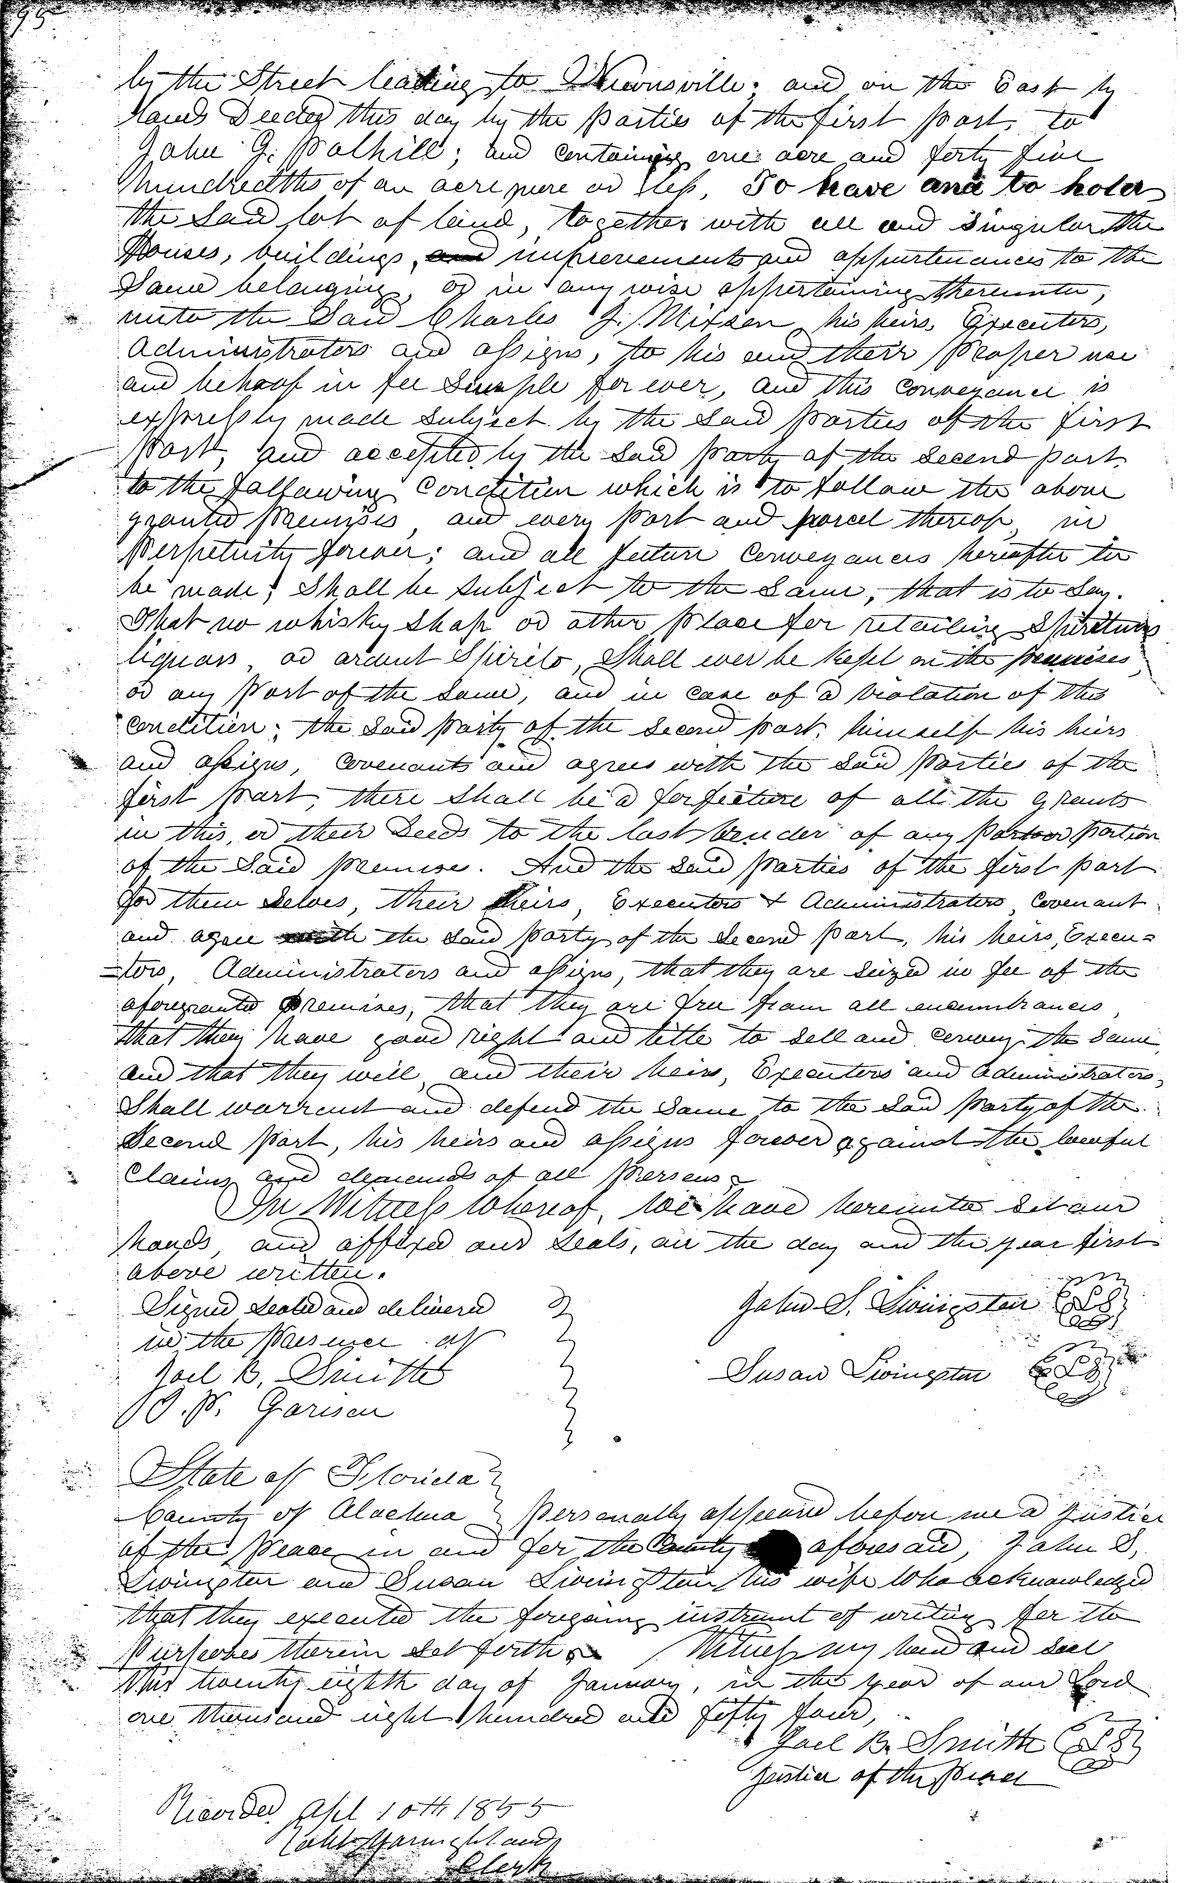 95
by the Street leading to Newnsville; and on the East by
lands Deeded this day by the Parties of the first part, to
John G. Polhill; and containing one acre and forty five
hundredths of an acre more or less, To have and to hold
the Said lot of land, together with all and singular the
Houses, buildings, and improvements and appurtenances to the
Same belonging, or in any wise appertaining thereunto,
unto the Said Charles J. Mixson, his heirs, Executors,
Administrators and assigns, to his and their proper use
and behoof in fee Simple forever, and this conveyance is
expressly made subject by the Said parties of the first
Part, and accepted by the Said party of the second part
to the following condition which is to follow the above
granted premises, and every part and parcel thereof, in
perpetuity forever; and all future conveyances hereafter to
be made; Shall be subject to the Same, that is to say.
That no whisky Shop or other place for retailing Spiritous
liquors, or ardent Spirits, Shall ever be kept on the premises,
or any part of the same, and in case of a violation of this
condition; the said party of the second part, himself his heirs
and assigns, covenants and agrees with the Said Parties of the
first part, there Shall be a forfeiture of all the grants
in this, or their Deeds to the last vender of any portion
of the Said premises. And the said parties of the first part
for them selves, their heirs, Executors & Administrators, Covenant
and agree with the Said party of the Second part, his heirs, Execu=
=tors, Administrators and assigns, that they are seized in fee of the
aforegranted premises, that they are free from all encumbrances,
that they have good right and title to sell and convey the same,
and that they will, and their heirs, Executors and administrators,
Shall warrant and defend the Same to the Said party of the
Second part, his heirs and assigns forever against the lawful
claims and demands of all persons.
In Witness Whereof, We have hereunto set our
hands, and affixed our Seals, on the day and the year first
above written.
Signed sealed and delivered
in the presence of
John S. Livingston LS
Joel B. Smith
Susan Livingston LS
Garison
State of Florida
County of Alachua
Personally appeared before me a Justice
of the Peace in and for the County aforesaid, John S.
Livingston and Susan Livingston his wife Who acknowledged
that they executed the foregoing instrument of writing for the
Purposes therein set forth. Witness my hand and seal
this twenty eighth day of January, in the year of our Lord
one thousand eight hundred and fifty four,
Joel B. Smith LS
Justice of the Peace
Recorded Apl 10th 1855
Clerk